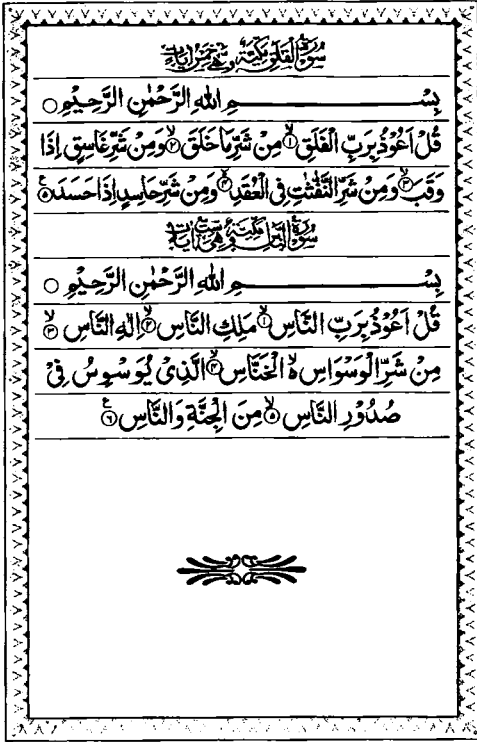 سُوْرَةُ الْفَلَقِ مَكِّيَّةٌ وَّهِيَ خَمْسُ اٰيَاتٍ
بِسْمِ اللهِ الرَّحْمٰنِ الرَّحِيْمِ ○
قُلْ اَعُوْذُ بِرَبِّ الْفَلَقِ ۙ﴿۱﴾ مِنْ شَرِّ مَا خَلَقَ ۙ﴿۲﴾ وَمِنْ شَرِّ غَاسِقٍ اِذَا
وَقَبَ ۙ﴿۳﴾ وَمِنْ شَرِّ النَّفّٰثٰتِ فِى الْعُقَدِ ۙ﴿۴﴾ وَمِنْ شَرِّ حَاسِدٍ اِذَا حَسَدَ ﴿۵﴾ ع
سُوْرَةُ النَّاسِ مَكِّيَّةٌ وَّهِيَ سِتُّ اٰيَاتٍ
بِسْمِ اللهِ الرَّحْمٰنِ الرَّحِيْمِ ○
قُلْ اَعُوْذُ بِرَبِّ النَّاسِ ۙ﴿۱﴾ مَلِكِ النَّاسِ ۙ﴿۲﴾ اِلٰهِ النَّاسِ ۙ﴿۳﴾
مِنْ شَرِّ الْوَسْوَاسِ ۙ۬ الْخَنَّاسِ ۙ﴿۴﴾ الَّذِىْ يُوَسْوِسُ فِىْ
صُدُوْرِ النَّاسِ ۙ﴿۵﴾ مِنَ الْجِنَّةِ وَالنَّاسِ ﴿۶﴾ ع